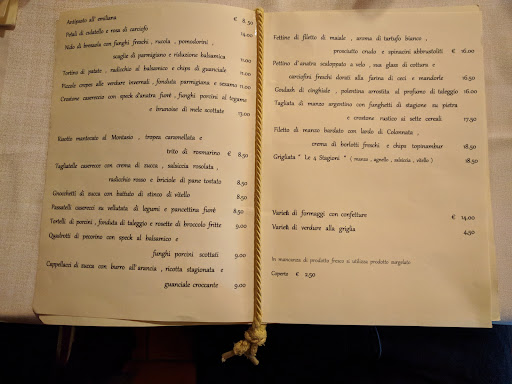 Antipasto all' emiliana € 8,50
Petali di culatello e rosa di carciofo 14,00
Nido di bresaola con funghi freschi, rucola, pomodorini,
scaglie di parmigiano e riduzione balsamica 11,00
Tortino di patate, radicchio al balsamico e chips di guanciale 11,00
Piccolo crepes alle verdure invernali, fonduta parmigiano e sesamo 11,00
Crostone casereccio con speck d'anatra fiorè, funghi porcini al tegamo
e brunoise di mele scottate 13,00
Risotto mantecato al Montasio, tropea caramellata e
trito di rosmarino € 8,50
Tagliatelle caserecce con crema di zucca, salsiccia rosolata,
radicchio rosso e briciole di pane tostato 8,50
Gnocchetti di zucca con battuto di stinco di vitello 8,50
Passatelli caserecci su vellutata di legumi e pancettina fiorè 8,50
Tortelli di porcini, fonduta di taleggio e rosette di broccolo fritte 9,00
Quadretti di pecorino con speck al balsamico e
funghi porcini scottati 9,00
Cappellacci di zucca con burro all'arancia, ricotta stagionata e
guanciale croccante 9,00
Fettine di filetto di maiale, aroma di tartufo bianco,
prosciutto crudo e spinacini abbrustoliti € 16,00
Pettino d'anatra scaloppato a velo, sua glassa di cottura e
carciofini freschi dorati alla farina di ceci e mandorle 16,50
Goulash di cinghiale, polentina arrostita al profumo di taleggio 16,00
Tagliata di manzo argentina con funghetti di stagione su pietra
e crostone rustico ai sette cereali 17,50
Filetto di manzo bardato con lardo di Colonnata,
crema di borlotti freschi e chips topinambur 18,50
Grigliata " Le 4 Stagioni " ( manzo, agnello, salsiccia, vitello ) 18,50
Varietà di formaggi con confetture € 14,00
Varietà di verdure alla griglia 4,50
In mancanza di prodotto fresco si utilizza prodotto surgelato
Coperto € 2,50